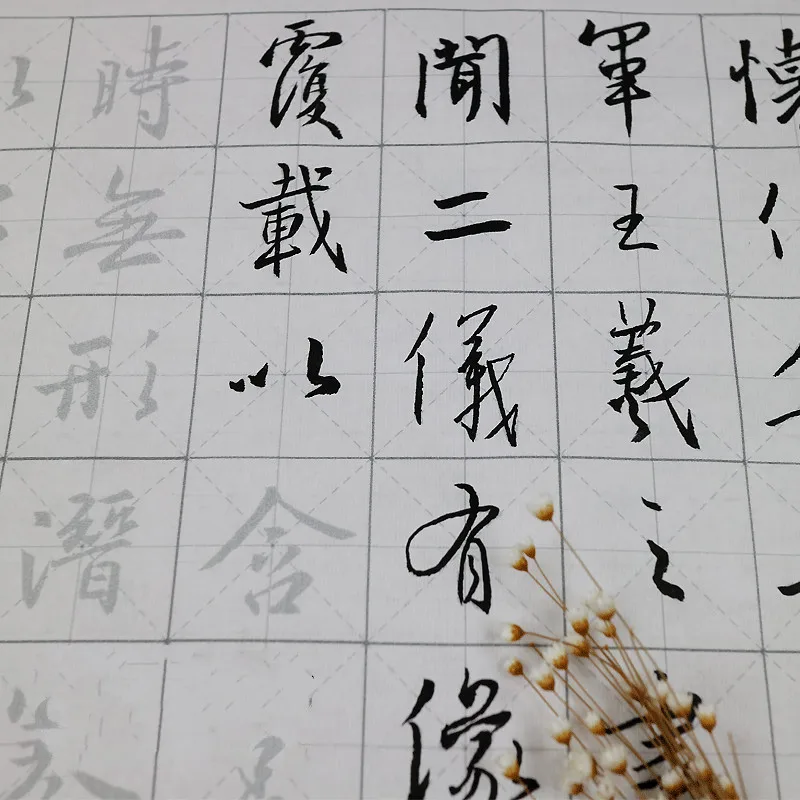 懷
軍王羲之書
聞二儀有像
覆載以含
時無形潛